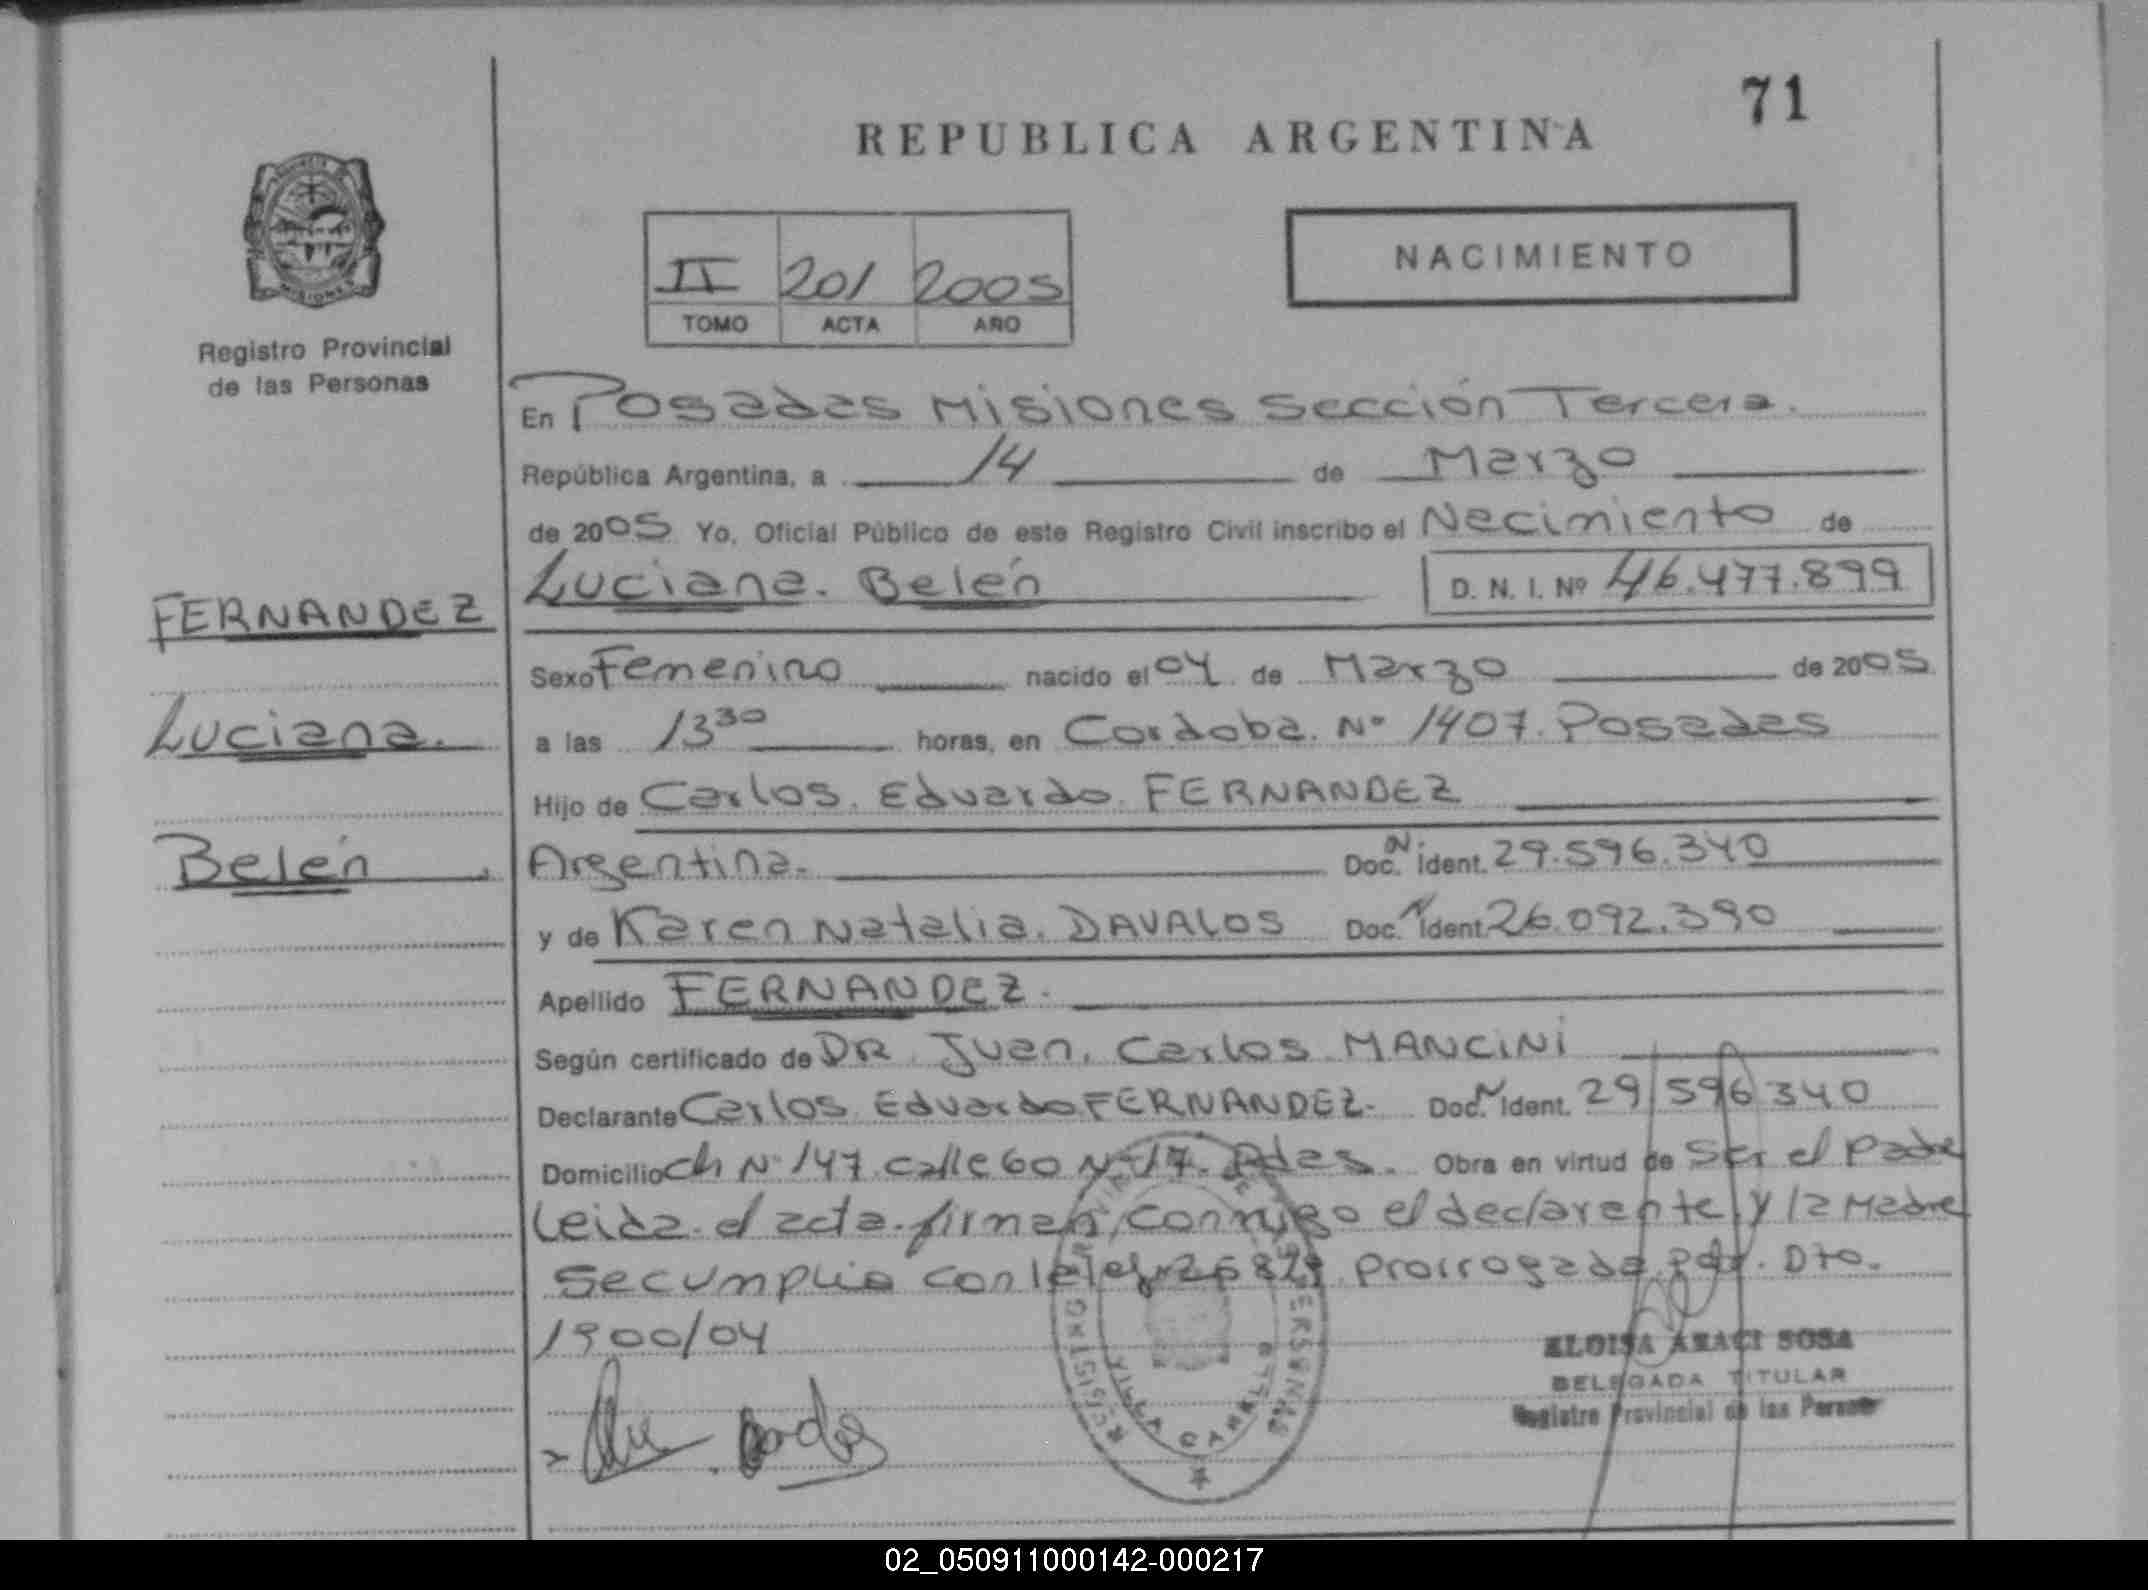 71
REPUBLICA ARGENTINA
PROVINCIA DE MISIONES
Registro Provincial
de las Personas
II 201 2005
TOMO ACTA AÑO
NACIMIENTO
En Posadas Misiones Sección Tercera.
República Argentina, a 14 de Marzo
de 2005 Yo, Oficial Público de este Registro Civil inscribo el Nacimiento de
Luciana. Belén D. N. I. Nº 46.477.899
FERNANDEZ
Luciana.
Belén
Sexo Femenino nacido el 04 de Marzo de 2005
a las 13 30 horas, en Cordoba. Nº 1407. Posadas
Hijo de Carlos. Eduardo. FERNANDEZ
Argentina. Doc. N Ident. 29.596.340
y de Karen Natalia. DAVALOS Doc. N Ident. 26.092.390
Apellido FERNANDEZ.
Según certificado de DR. Juan. Carlos. MANCINI
Declarante Carlos. Eduardo FERNANDEZ. Doc. N Ident. 29 596 340
Domicilio Ch Nº 147. Calle 60 Nº 17. Pdas. Obra en virtud de ser el padre
Leida. el acta. firman, conmigo el declarante y la Madre
Se cumplio con la ley 25 819 prorrogada por. Dto.
1900/04
REGISTRO PROVINCIAL DE LAS PERSONAS
VILLA CABELLO
ELOISA ARACI SOSA
DELEGADA TITULAR
Registro Provincial de las Personas
02_050911000142-000217